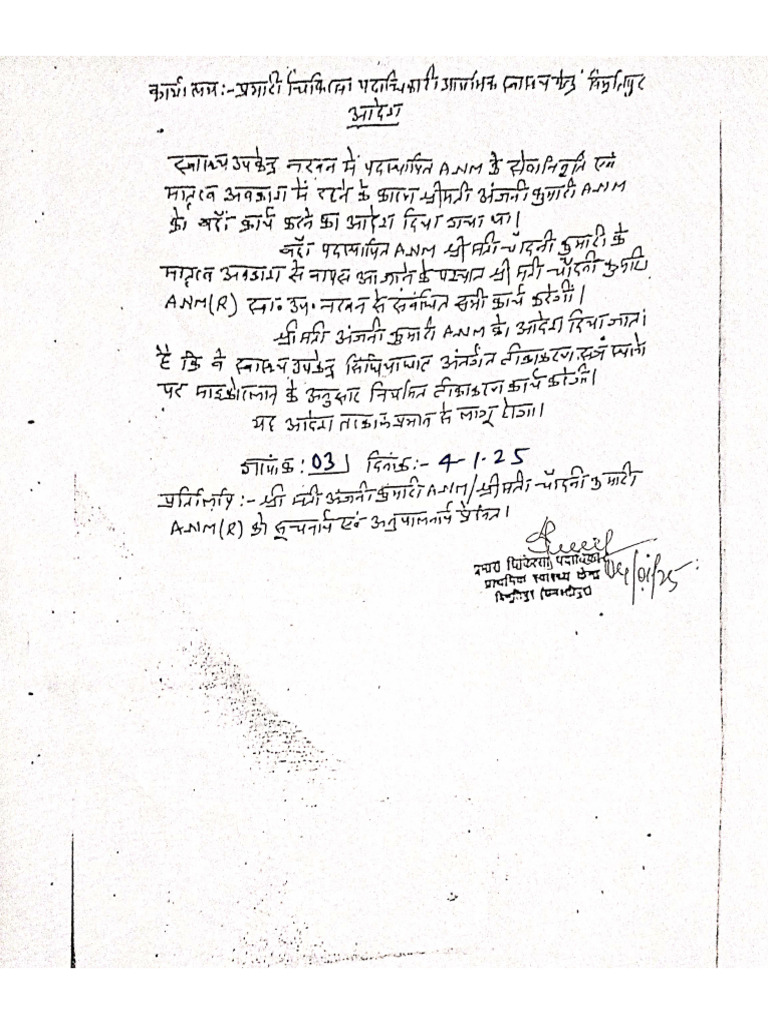 कार्यालय :- प्रभारी चिकित्सा पदाधिकारी प्राथमिक स्वास्थ्य केन्द्र विभूतिपुर
आदेश
स्वास्थ्य उपकेन्द्र नरहन में पदस्थापित A.N.M के सेवानिवृति एवं
मातृत्व अवकाश में रहने के कारण श्रीमती अंजनी कुमारी A.N.M
को वहाँ कार्य करने का आदेश दिया गया था।
वहाँ पदस्थापित A.N.M श्रीमती चाँदनी कुमारी के
मातृत्व अवकाश से वापस आ जाने के पश्चात श्रीमती चाँदनी कुमारी
A.N.M(R) स्वा. उप. नरहन से संबंधित सभी कार्य करेगीं।
श्रीमती अंजनी कुमारी A.N.M को आदेश दिया जाता
है कि वे स्वास्थ्य उपकेन्द्र सिंघियाघाट अंतर्गत टीकाकरण सत्र स्थलों
पर माइक्रोप्लान के अनुसार नियमित टीकाकरण कार्य करेगीं।
यह आदेश तत्काल प्रभाव से लागू होगा।
ज्ञापांक : 03 दिनांक :- 4-1-25
प्रतिलिपि :- श्रीमती अंजनी कुमारी A.N.M/श्रीमती चाँदनी कुमारी
A.N.M(R) को सूचनार्थ एवं अनुपालनार्थ प्रेषित।
चिकित्सा पदाधिकारी
प्राथमिक स्वास्थ्य केन्द्र 04/01/25
विभूतिपुर (समस्तीपुर)